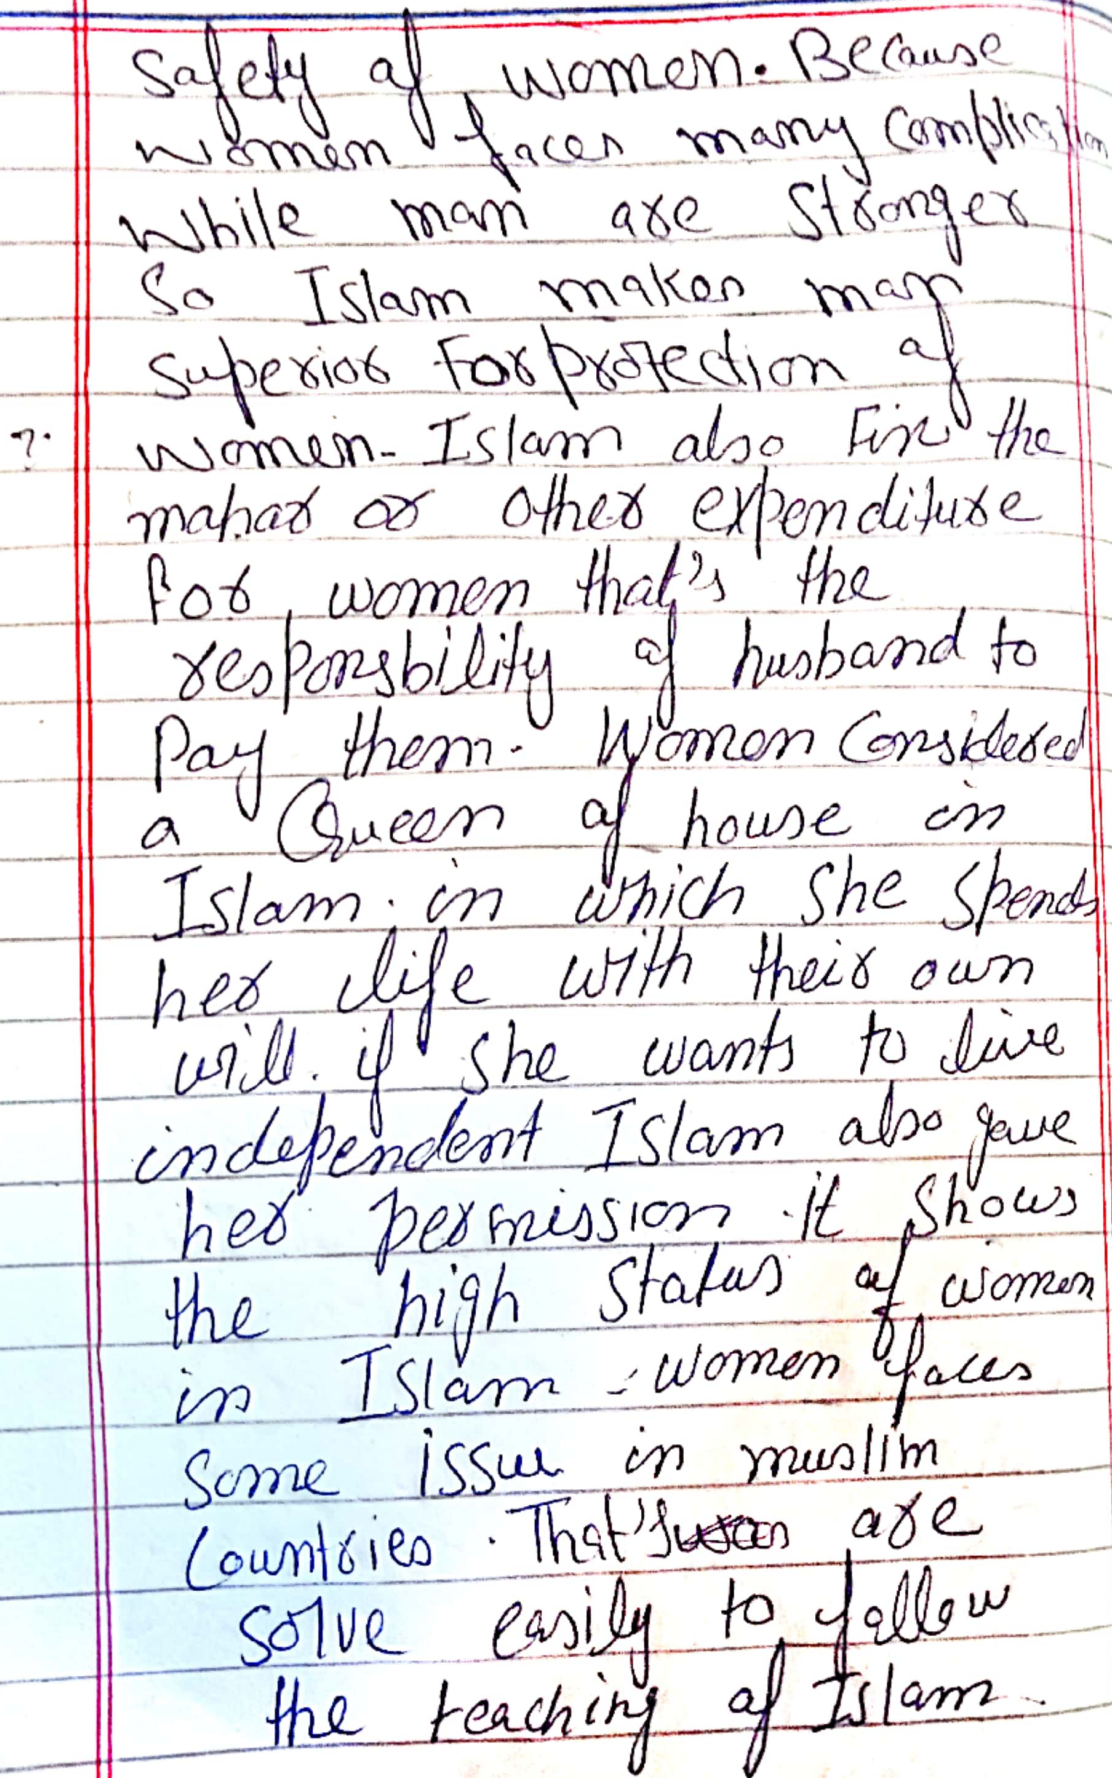 Safety of women. Because
women faces many complication
while man are stronger
So Islam makes man
superior For protection of
?. women. Islam also Fix the
mahar or other expenditure
for women that's the
responsbility of husband to
Pay them. Women Considered
a Queen of house in
Islam. in which she spends
her life with their own
will. if she wants to live
independent Islam also gave
her permission. it shows
the high status of women
in Islam - women faces
some issue in muslim
Countries. That's are
solve easily to follow
the teaching of Islam.